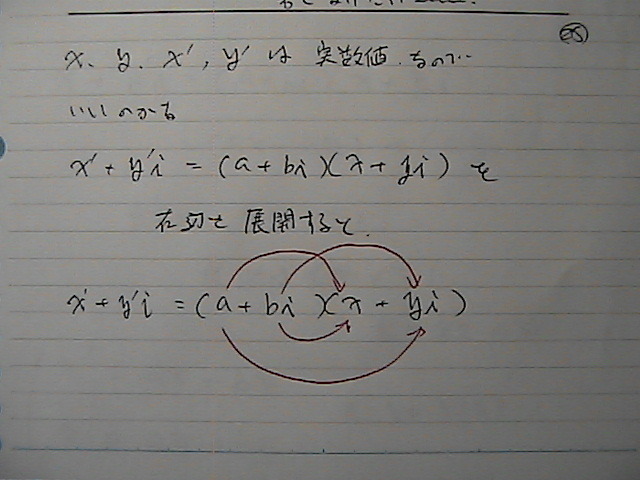 x、y、x′, y′ は 実数値、なので
いいのかな
x′ + y′i = (a + bi)(x + yi) を
右辺を展開すると、
x′ + y′i = (a + bi)(x + yi)